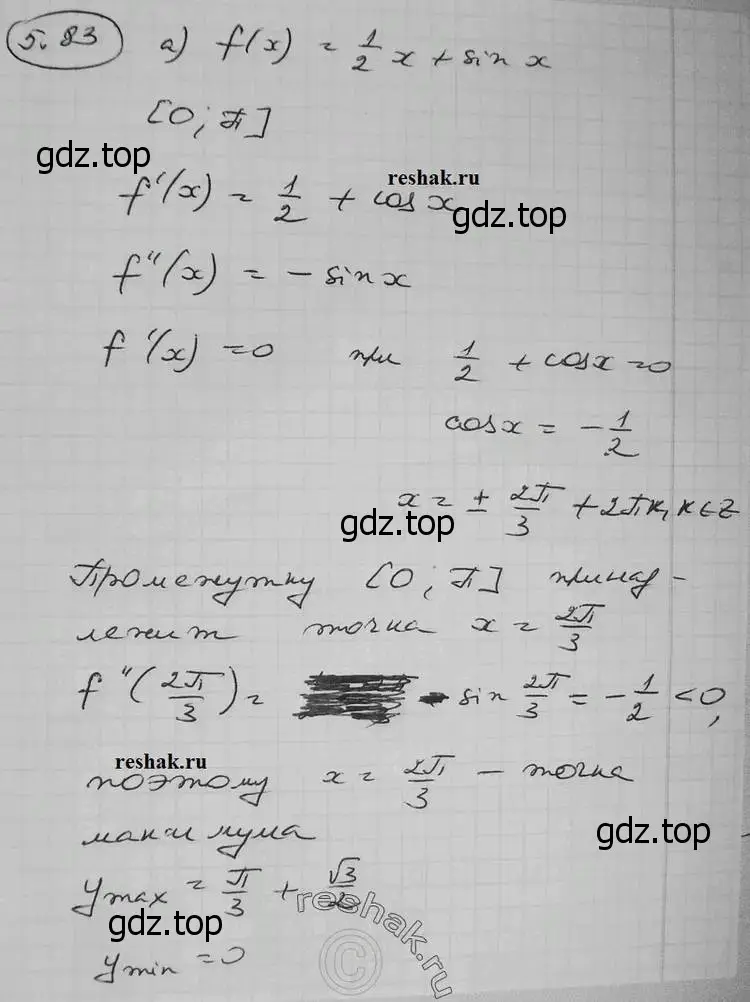 5.83 а) f(x) = 1/2 x + sin x
[0; π]
gdz.top
reshak.ru
f'(x) = 1/2 + cos x
gdz.top
f''(x) = - sin x
f'(x) = 0 при 1/2 + cos x = 0
cos x = - 1/2
x = ± 2π/3 + 2πk, k ∈ Z
gdz.top
Промежутку [0; π] принад-
лежит точка x = 2π/3
f''(2π/3) = - sin 2π/3 = - 1/2 < 0,
reshak.ru
поэтому x = 2π/3 - точка
максимума
gdz.top
y max = π/3 + √3/2
reshak.ru
gdz.top
y min = 0
©